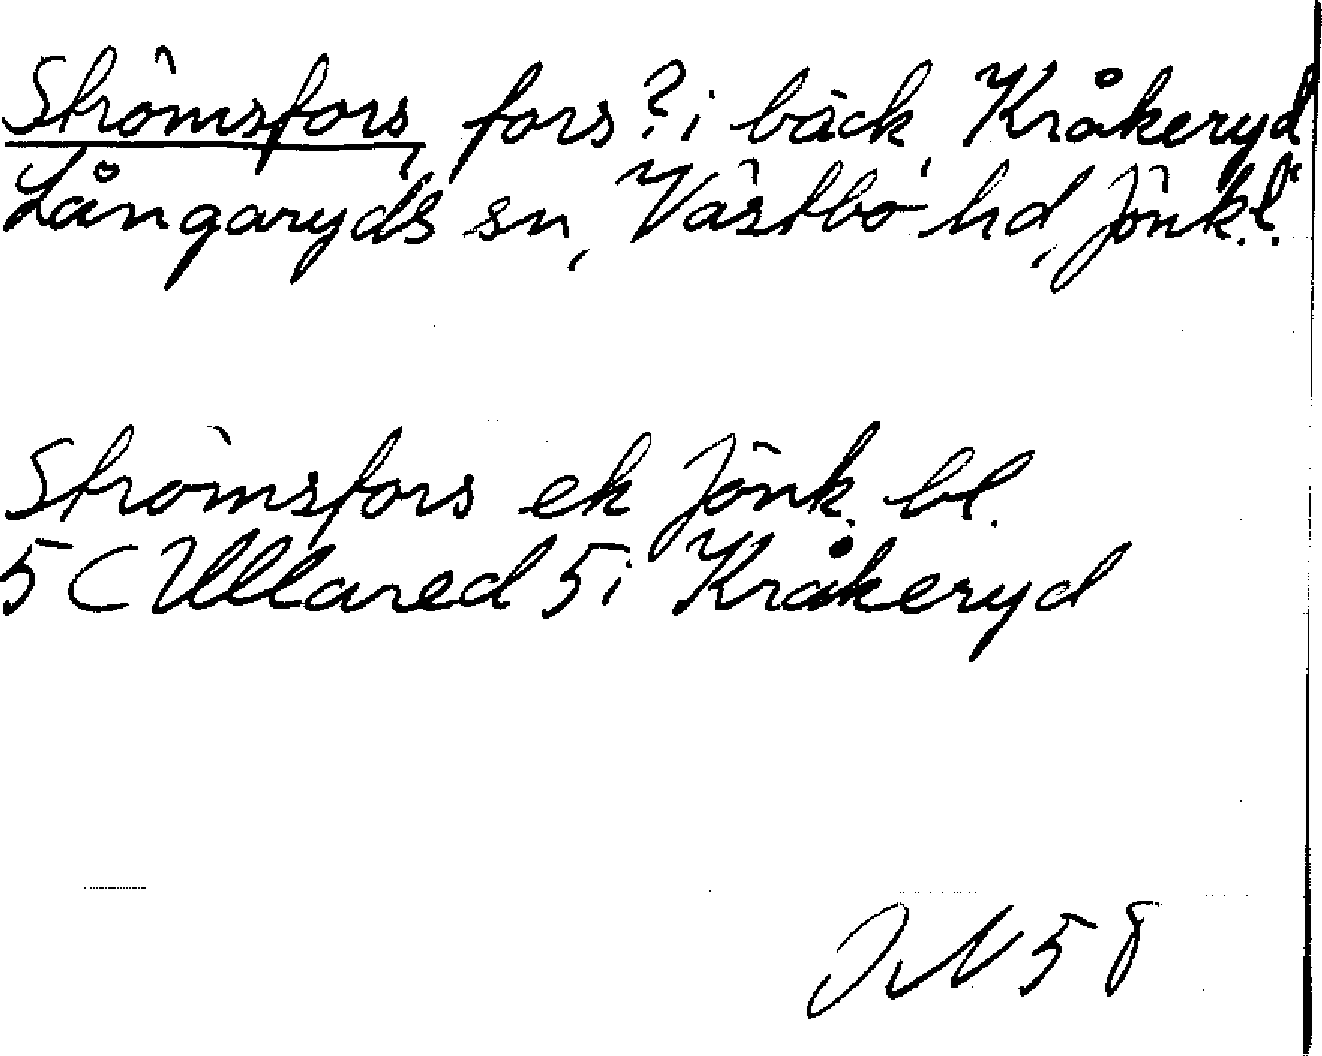 Strömsfors, fors? i bäck, Kråkeryd
Långaryds sn, Västbo hd, Jönk. l.
Strömsfors ek Jönk. bl.
5 C Ullared 5 i Kråkeryd
58